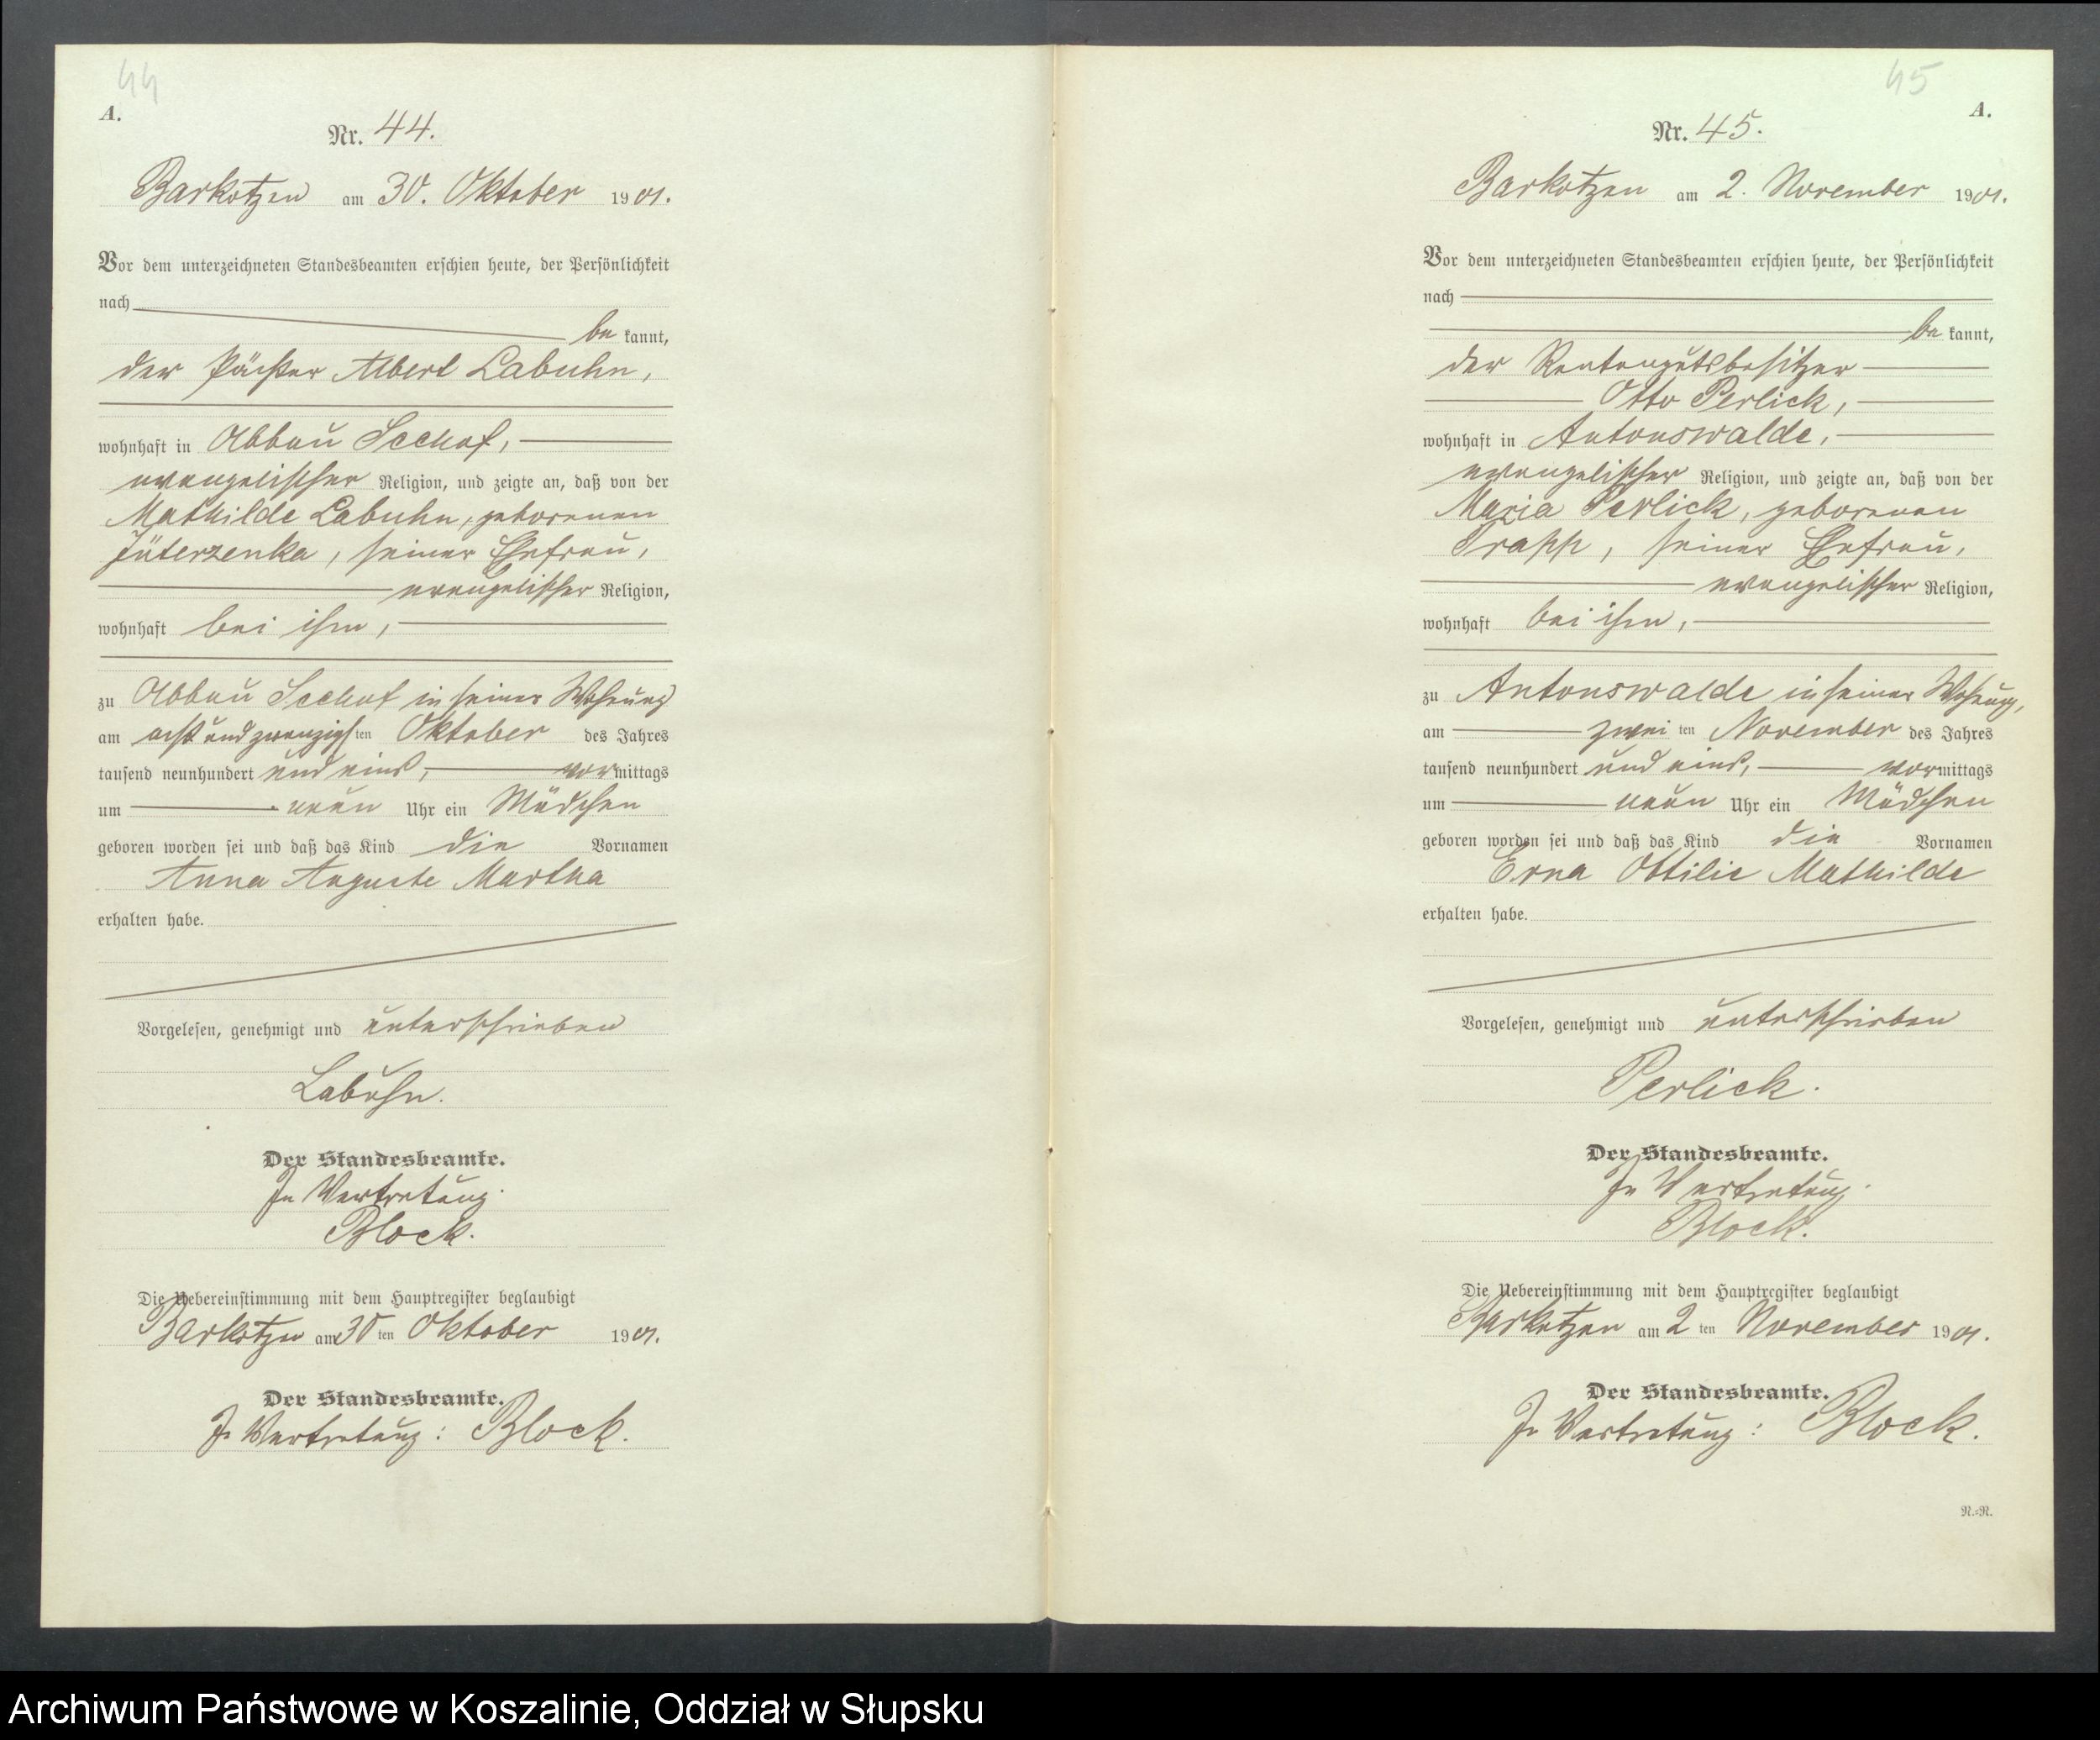 44
A.
Nr. 44.
Barkotzen am 30. Oktober 1901.
Vor dem unterzeichneten Standesbeamten erschien heute, der Persönlichkeit
nach
be kannt,
der Pächter Albert Labuhn,
wohnhaft in Abbau Seehof,
evangelischer Religion, und zeigte an, daß von der
Mathilde Labuhn, geborenen
Jüterzenka, seiner Ehefrau,
evangelischer Religion,
wohnhaft bei ihm,
zu Abbau Seehof in seiner Wohnung
am acht und zwanzigsten Oktober des Jahres
tausend neunhundert und eins, vormittags
um neun Uhr ein Mädchen
geboren worden sei und daß das Kind die Vornamen
Anna Auguste Martha
erhalten habe.
Vorgelesen, genehmigt und unterschrieben
Labuhn.
Der Standesbeamte.
In Vertretung.
Block.
Die Uebereinstimmung mit dem Hauptregister beglaubigt
Barkotzen am 30 ten Oktober 1901.
Der Standesbeamte.
In Vertretung: Block.
45
A.
Nr. 45.
Barkotzen am 2. November 1901.
Vor dem unterzeichneten Standesbeamten erschien heute, der Persönlichkeit
nach
be kannt,
der Rentengutsbesitzer
Otto Perlick,
wohnhaft in Antonswalde,
evangelischer Religion, und zeigte an, daß von der
Maria Perlick, geborenen
Trapp, seiner Ehefrau,
evangelischer Religion,
wohnhaft bei ihm,
zu Antonswalde in seiner Wohnung,
am zwei ten November des Jahres
tausend neunhundert und eins, vormittags
um neun Uhr ein Mädchen
geboren worden sei und daß das Kind die Vornamen
Erna Ottilie Mathilde
erhalten habe.
Vorgelesen, genehmigt und unterschrieben
Perlick.
Der Standesbeamte.
In Vertretung.
Block.
Die Uebereinstimmung mit dem Hauptregister beglaubigt
Barkotzen am 2 ten November 1901.
Der Standesbeamte.
In Vertretung: Block.
N.=N.
Archiwum Państwowe w Koszalinie, Oddział w Słupsku